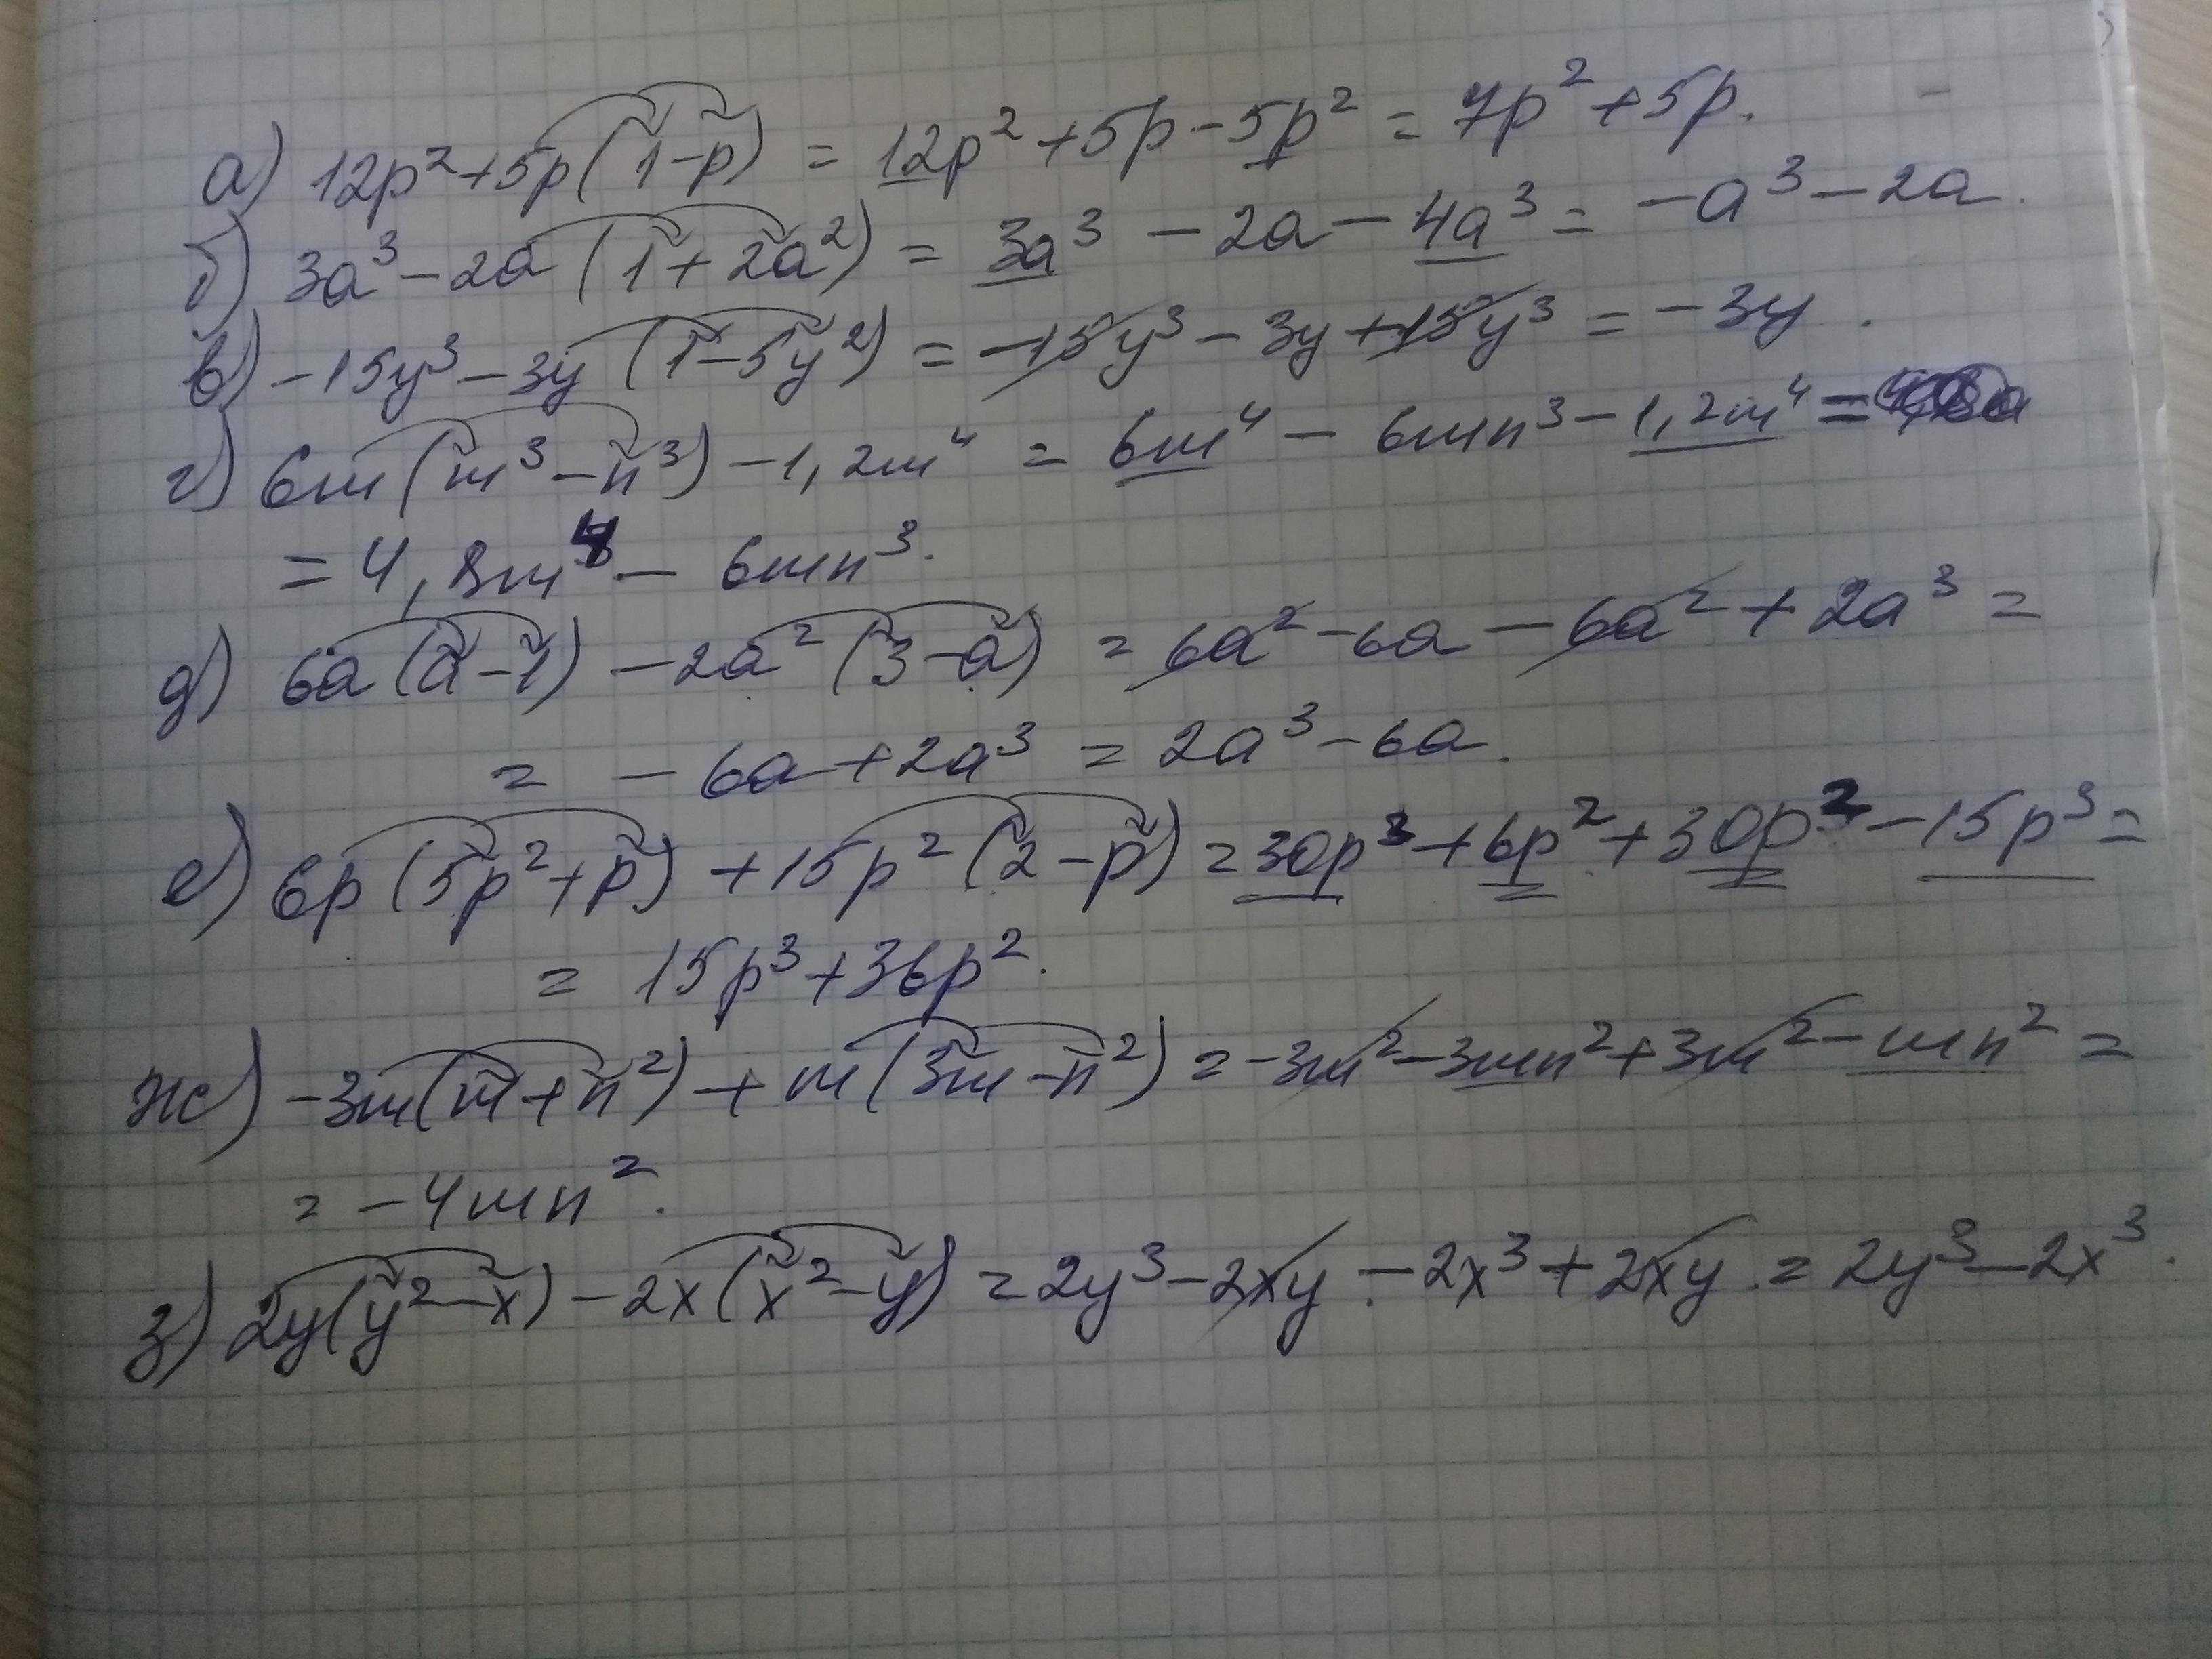 а) 12p²+5p(1-p) = 12p²+5p-5p² = 7p²+5p.
б) 3a³-2a(1+2a²) = 3a³-2a-4a³ = -a³-2a.
в) -15y³-3y(1-5y²) = -15y³-3y+15y³ = -3y.
г) 6m(m³-n³)-1,2m⁴ = 6m⁴-6mn³-1,2m⁴ =
= 4,8m⁴-6mn³.
д) 6a(a-1)-2a²(3-a) = 6a²-6a-6a²+2a³ =
= -6a+2a³ = 2a³-6a.
е) 6p(5p²+p)+15p²(2-p) = 30p³+6p²+30p²-15p³ =
= 15p³+36p².
ж) -3m(m+n²)+m(3m-n²) = -3m²-3mn²+3m²-mn² =
= -4mn².
з) 2y(y²-x)-2x(x²-y) = 2y³-2xy-2x³+2xy = 2y³-2x³.